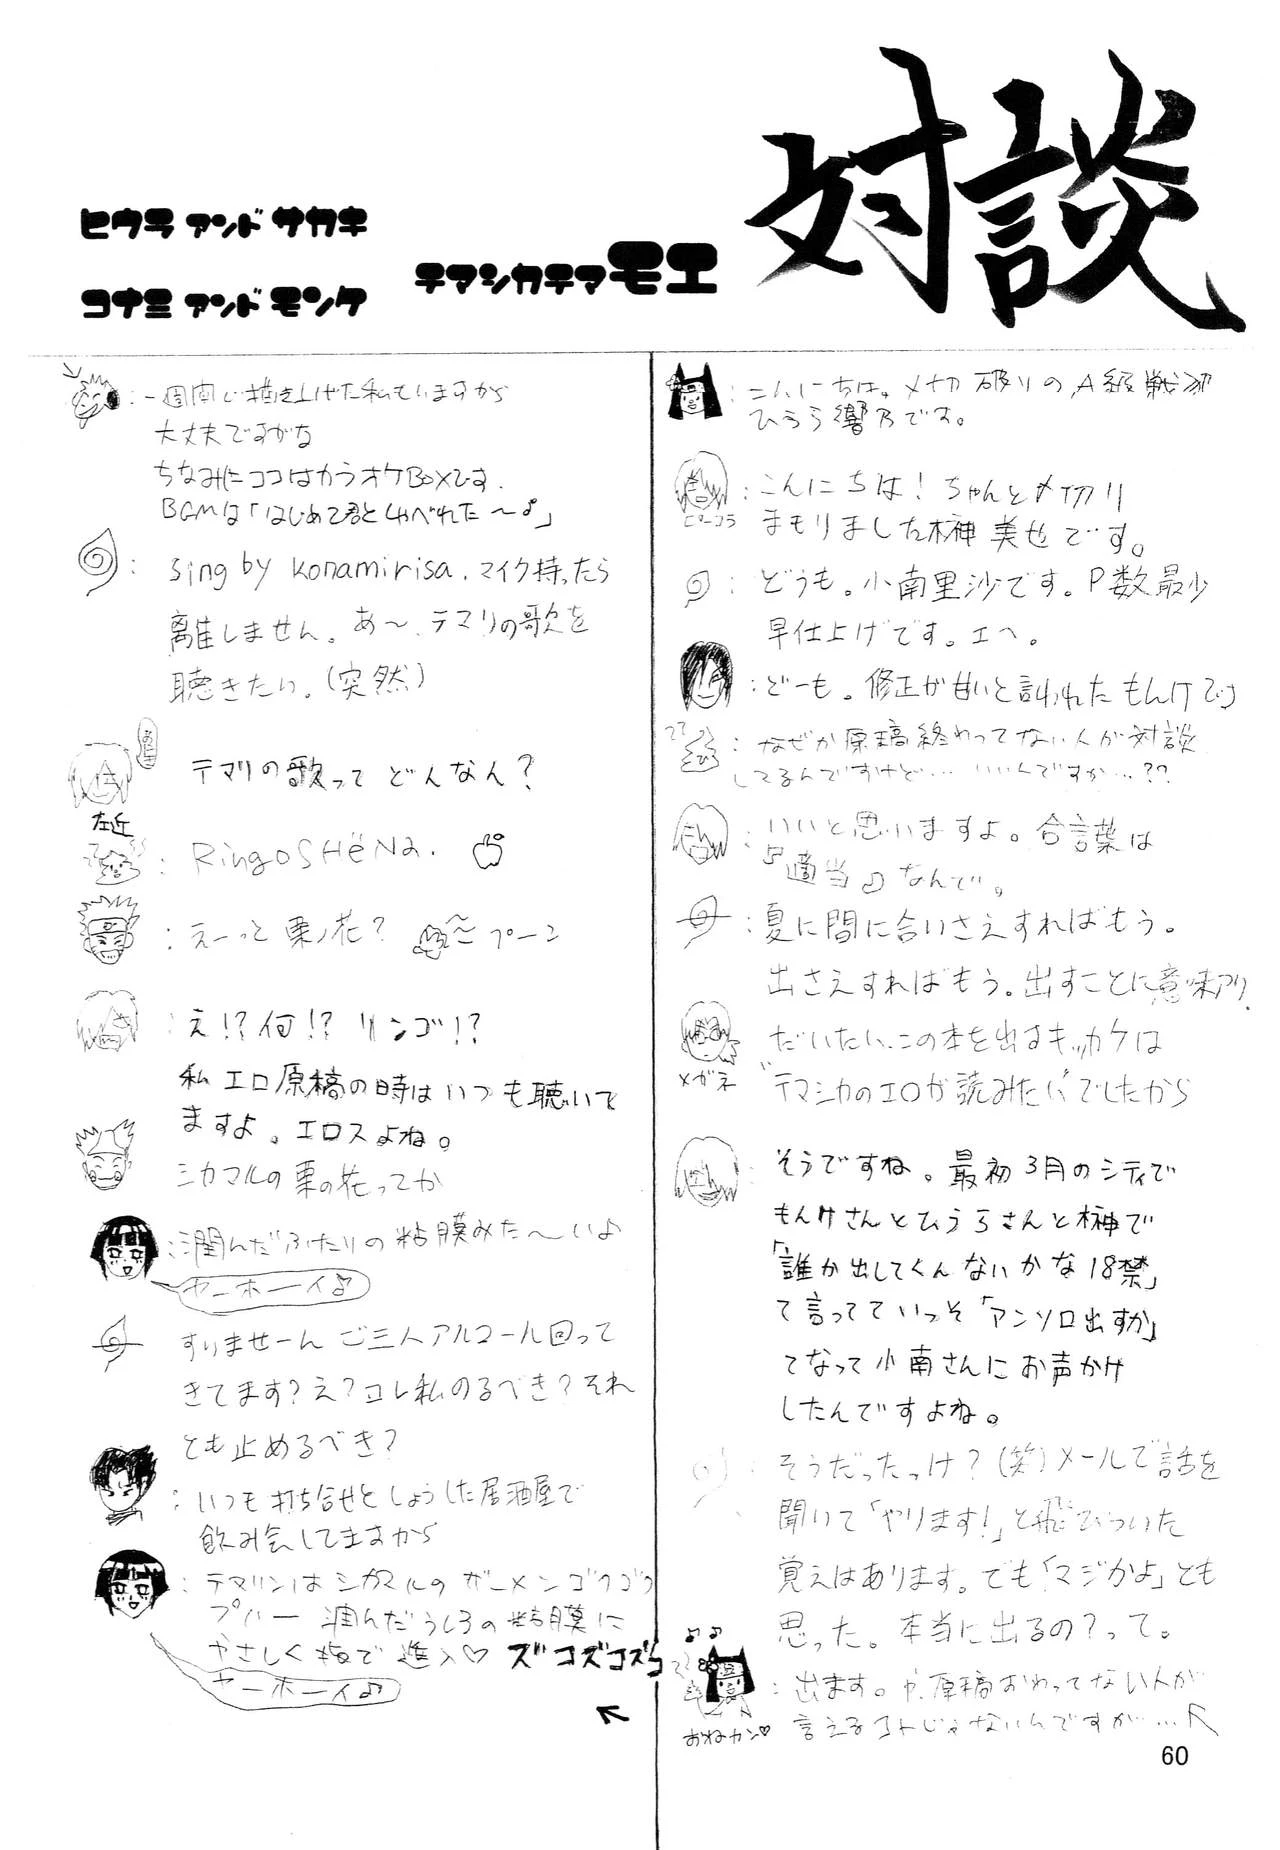 対談
テマシカテマモエ
ヒウラ アンド サカキ
コナミ アンド モンケ
こんにちは。〆切破りのA級戦犯
ひうら響乃です。
こんにちは！ちゃんと〆切り
まもりました榊 美也です。
ピーコラ
どうも。小南里沙です。P数最少
早仕上げです。エヘ。
どーも。修正が甘いと言われたもんけです
なぜか原稿終わってない人が対談
してるんですけど… いいんですか…??
いいと思いますよ。合言葉は
『適当♪』なんで。
夏に間に合いさえすればもう。
出さえすればもう。出すことに意味アリ。
メガネ
だいたい、この本を出るキッカケは
"テマシカのエロが読みたい"でしたから
そうですね。最初3月のシティで
もんけさんとひうらさんと榊で
「誰か出してくんないかな18禁」
て言ってていっそ「アンソロ出すか」
てなって小南さんにお声かけ
したんですよね。
そうだったっけ？(笑)メールで話を
聞いて「やります！」と飛びついた
覚えはあります。でも「マジかよ」とも
思った。本当に出るの？って。
出ます。や、原稿おわってない人が
おねカン♡ 言えるコトじゃないんですが…
60
一週間で描き上げた私ていますから
大丈夫ですがな
ちなみにココはカラオケBoxです。
BGMは「はじめて君としゃべれた〜♪」
sing by konamirisa. マイク持ったら
離しません。あ〜、テマリの歌を
聴きたい。(突然)
テマリの歌ってどんなん？
左近
RingoSHëNa.
えーっと 栗ノ花？ プーン
え!?何!? リンゴ!?
私エロ原稿の時はいつも聴いて
ますよ。エロスよね。
シカマルの栗の花ってか
潤んだふたりの粘膜みた〜い♪
ヤーホーイ♪
すいませーん ご三人アルコール回って
きてます？え？コレ私のるべき？それ
とも止めるべき？
いつも打ち合せとしょうした居酒屋で
飲み会してますから
テマリンはシカマルのザーメンゴクゴク
プハー 潤んだうしろの粘膜に
やさしく指で進入♡ ズコズコズコ
ヤーホーイ♪